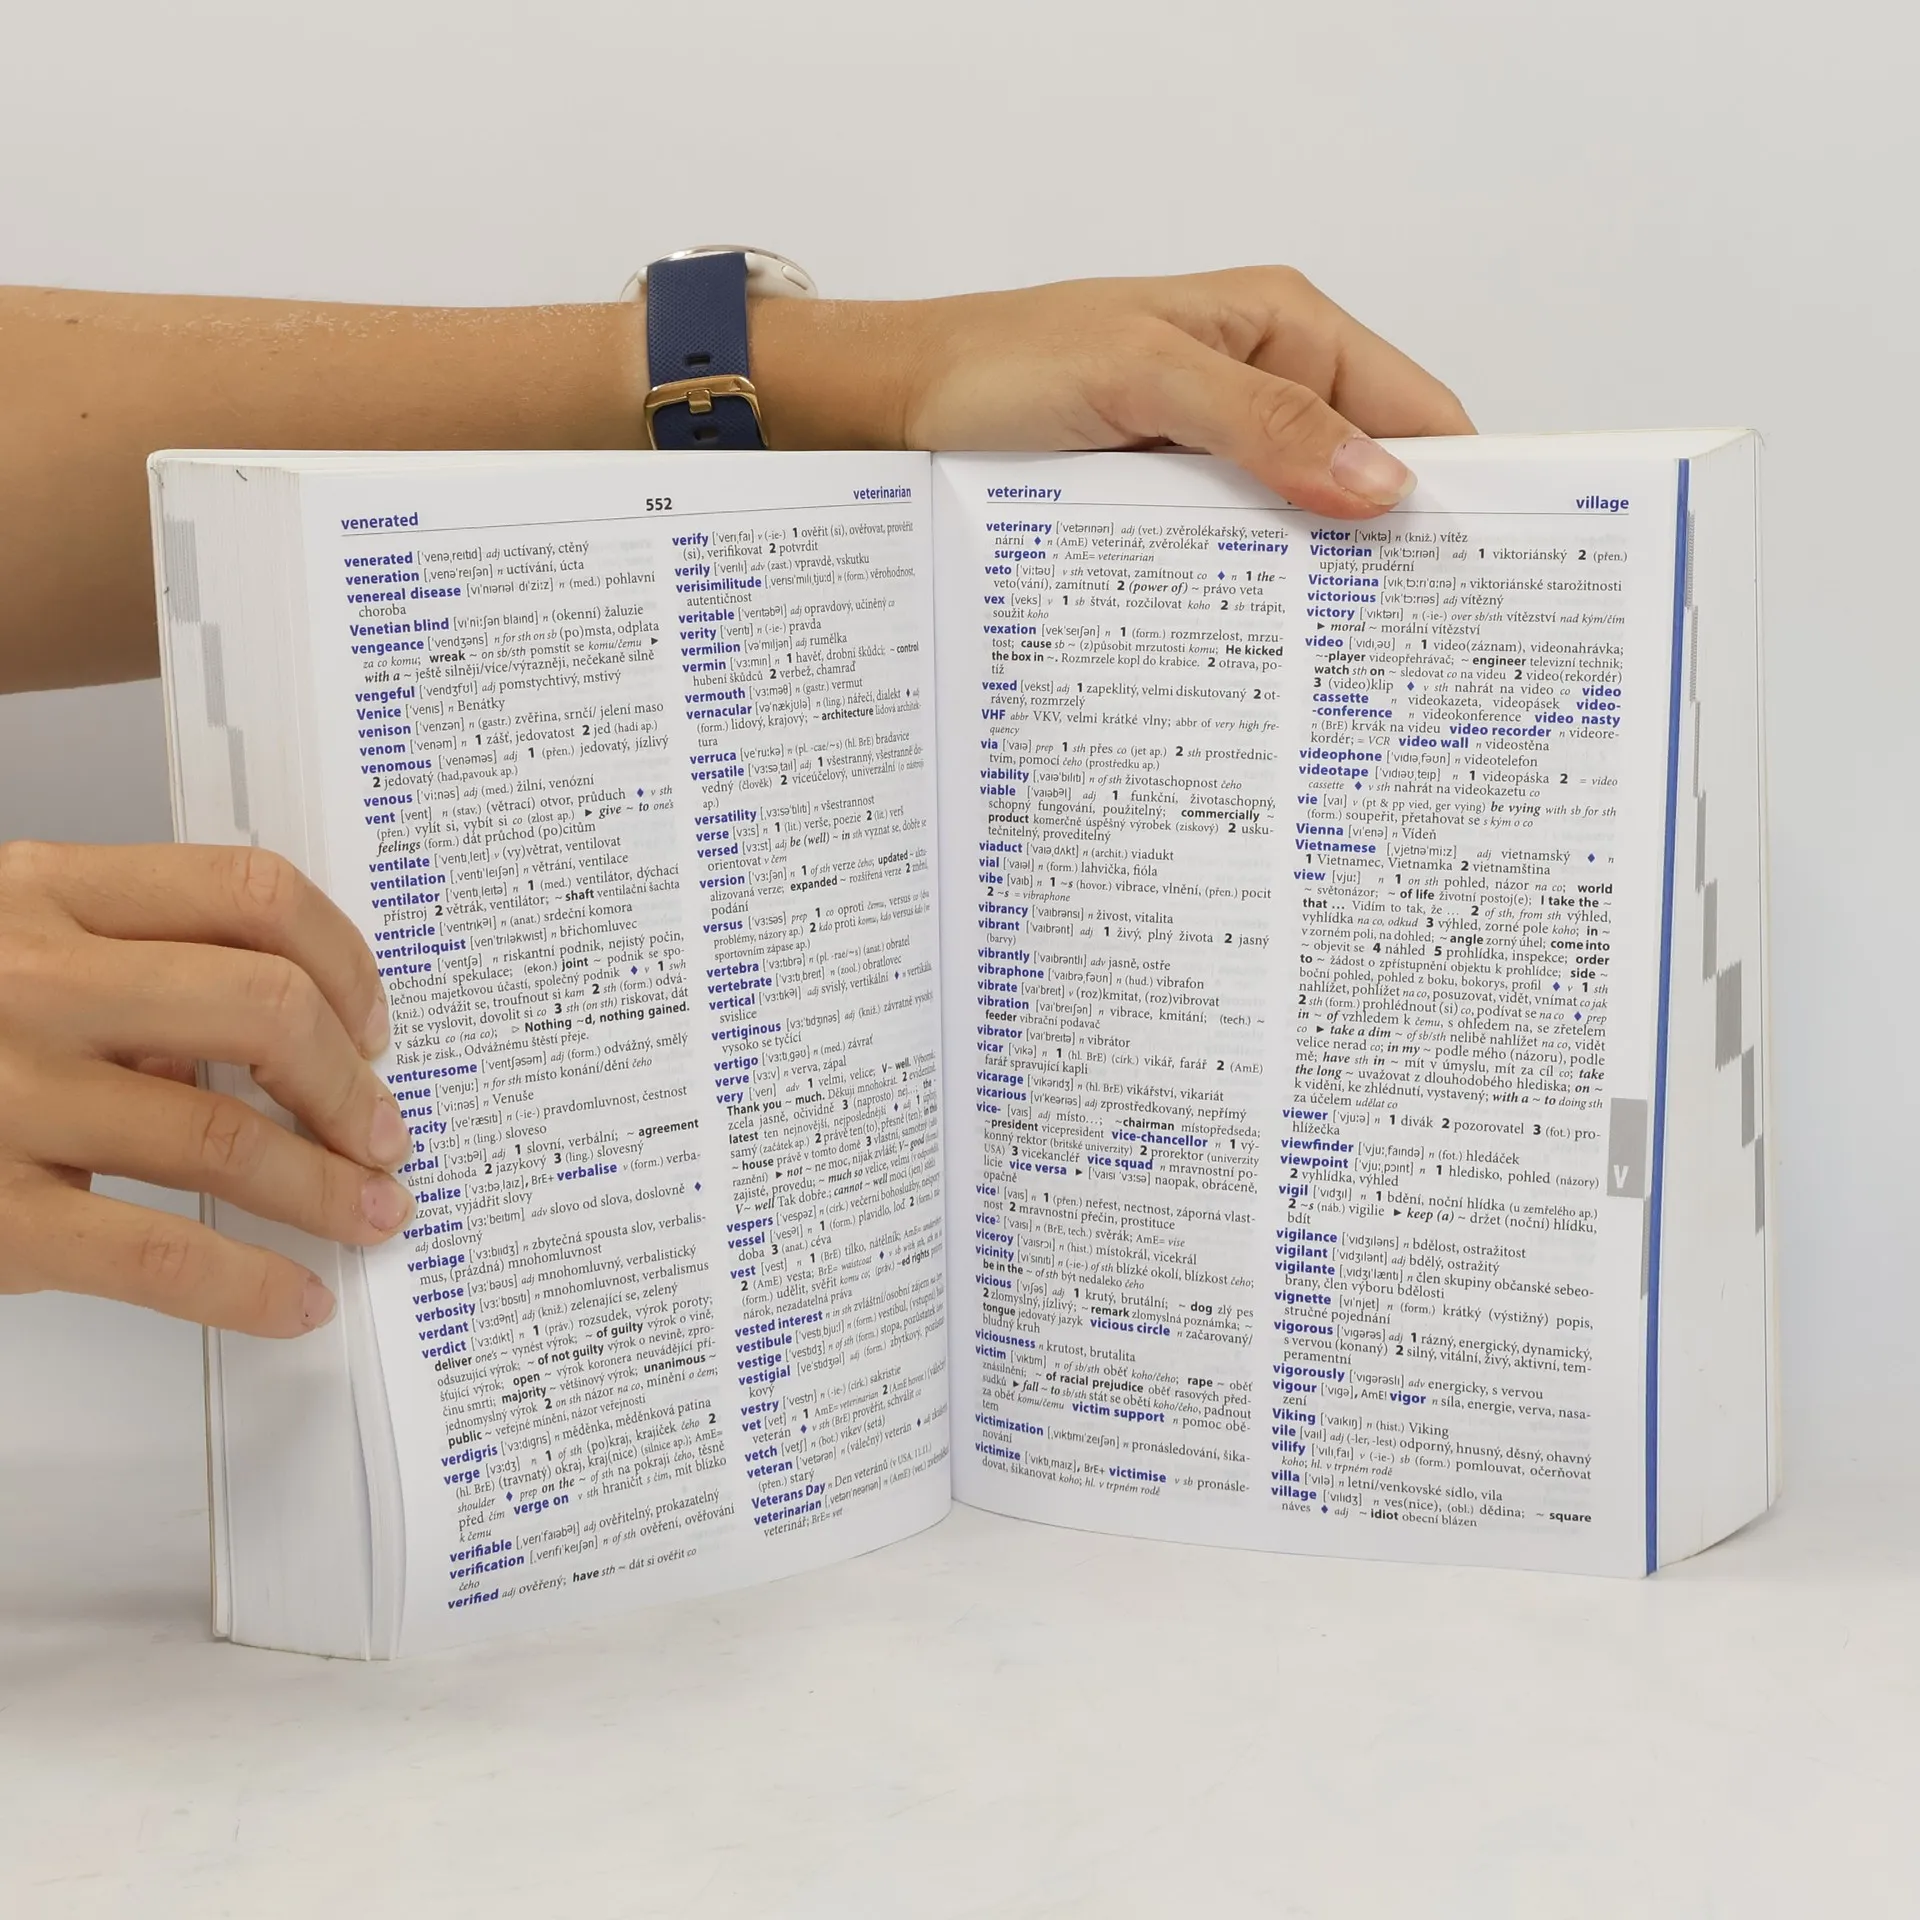 venerated
552
veterinarian
venerated ['venə,reitid] adj uctívaný, ctěný
veneration [,venə'reiʃən] n uctívání, úcta
venereal disease [vɪ'nɪərɪəl dɪ'zi:z] n (med.) pohlavní
choroba
Venetian blind [vɪ'ni:ʃən blaɪnd] n (okenní) žaluzie
vengeance ['vendʒəns] n for sth on sb (po)msta, odplata
za co komu; wreak ~ on sb/sth pomstít se komu/čemu ►
with a ~ ještě silněji/více/výrazněji, nečekaně silně
vengeful ['vendʒful] adj pomstychtivý, mstivý
Venice ['venɪs] n Benátky
venison ['venɪzən] n (gastr.) zvěřina, srnčí/ jelení maso
venom ['venəm] n 1 zášť, jedovatost 2 jed (hadí ap.)
venomous ['venəməs] adj 1 (přen.) jedovatý, jízlivý
2 jedovatý (had,pavouk ap.)
venous ['vi:nəs] adj (med.) žilní, venózní
vent [vent] n (stav.) (větrací) otvor, průduch ♦ v sth
(přen.) vylít si, vybít si co (zlost ap.) ► give ~ to one's
feelings (form.) dát průchod (po)citům
ventilate ['ventɪ,leɪt] v (vy)větrat, ventilovat
ventilation [,ventɪ'leɪʃən] n větrání, ventilace
ventilator ['ventɪ,leɪtə] n 1 (med.) ventilátor, dýchací
přístroj 2 větrák, ventilátor; ~ shaft ventilační šachta
ventricle ['ventrɪkəl] n (anat.) srdeční komora
ventriloquist [ven'trɪləkwɪst] n břichomluvec
venture ['ventʃə] n riskantní podnik, nejistý počin,
obchodní spekulace; (ekon.) joint ~ podnik se spo-
lečnou majetkovou účastí, společný podnik ♦ v 1 swh
(kniž.) odvážit se, troufnout si kam 2 sth (form.) odvá-
žit se vyslovit, dovolit si co 3 sth (on sth) riskovat, dát
v sázku co (na co); ▷ Nothing ~d, nothing gained.
Risk je zisk., Odvážnému štěstí přeje.
venturesome ['ventʃəsəm] adj (form.) odvážný, smělý
venue ['venju:] n for sth místo konání/dění čeho
enus ['vi:nəs] n Venuše
racity [ve'ræsɪtɪ] n (-ie-) pravdomluvnost, čestnost
rb [vɜ:b] n (ling.) sloveso
erbal ['vɜ:bəl] adj 1 slovní, verbální; ~ agreement
ústní dohoda 2 jazykový 3 (ling.) slovesný
rbalize ['vɜ:bə,laɪz], BrE+ verbalise v (form.) verba-
izovat, vyjádřit slovy
verbatim [vɜ:'beɪtɪm] adv slovo od slova, doslovně ♦
adj doslovný
verbiage ['vɜ:bɪɪdʒ] n zbytečná spousta slov, verbalis-
mus, (prázdná) mnohomluvnost
verbose [vɜ:'bəʊs] adj mnohomluvný, verbalistický
verbosity [vɜ:'bɒsɪtɪ] n mnohomluvnost, verbalismus
verdant ['vɜ:dənt] adj (kniž.) zelenající se, zelený
verdict ['vɜ:dɪkt] n 1 (práv.) rozsudek, výrok poroty;
deliver one's ~ vynést výrok; ~ of guilty výrok o vině,
odsuzující výrok; ~ of not guilty výrok o nevině, zpro-
šťující výrok; open ~ výrok koronera neuvádějící pří-
činu smrti; majority ~ většinový výrok; unanimous ~
jednomyslný výrok 2 on sth názor na co, mínění o čem;
public ~ veřejné mínění, názor veřejnosti
verdigris ['vɜ:dɪgrɪs] n měděnka, měděnková patina
verge [vɜ:dʒ] n 1 of sth (po)kraj, krajíček čeho 2
(hl. BrE) (travnatý) okraj, kraj(nice) (silnice ap.); AmE=
shoulder ♦ prep on the ~ of sth na pokraji čeho, těsně
před čím verge on v sth hraničit s čím, mít blízko
k čemu
verifiable [,verɪ'faɪəbəl] adj ověřitelný, prokazatelný
verification [,verɪfɪ'keɪʃən] n of sth ověření, ověřování
čeho
verified adj ověřený; have sth ~ dát si ověřit co
verify ['verɪ,faɪ] v (-ie-) 1 ověřit (si), ověřovat, prověřit
(si), verifikovat 2 potvrdit
verily ['verɪlɪ] adv (zast.) vpravdě, vskutku
verisimilitude [,verɪsɪ'mɪlɪ,tju:d] n (form.) věrohodnost,
autentičnost
veritable ['verɪtəbəl] adj opravdový, učiněný co
verity ['verɪtɪ] n (-ie-) pravda
vermilion [və'mɪljən] n rumělka
vermin ['vɜ:mɪn] n 1 havěť, drobní škůdci; ~ control
hubení škůdců 2 verbež, chamraď
vermouth ['vɜ:məθ] n (gastr.) vermut
vernacular [və'nækjʊlə] n (ling.) nářečí, dialekt ♦ adj
(form.) lidový, krajový; ~ architecture lidová architek-
tura
verruca [ve'ru:kə] n (pl. -cae/~s) (hl. BrE) bradavice
versatile ['vɜ:sə,taɪl] adj 1 všestranný, všestranně do-
vedný (člověk) 2 víceúčelový, univerzální (o nástroji
ap.)
versatility [,vɜ:sə'tɪlɪtɪ] n všestrannost
verse [vɜ:s] n 1 (lit.) verše, poezie 2 (lit.) verš
versed [vɜ:st] adj be (well) ~ in sth vyznat se, dobře se
orientovat v čem
version ['vɜ:ʃən] n 1 of sth verze čeho; updated ~ aktu-
alizovaná verze; expanded ~ rozšířená verze 2 znění,
podání
versus ['vɜ:səs] prep 1 co oproti čemu, versus co (dva
problémy, názory ap.) 2 kdo proti komu, kdo versus kdo (ve
sportovním zápase ap.)
vertebra ['vɜ:tɪbrə] n (pl. -rae/~s) (anat.) obratel
vertebrate ['vɜ:tɪ,breɪt] n (zool.) obratlovec
vertical ['vɜ:tɪkəl] adj svislý, vertikální ♦ n vertikála,
svislice
vertiginous [vɜ:'tɪdʒɪnəs] adj (kniž.) závratně vysoký,
vysoko se tyčící
vertigo ['vɜ:tɪ,gəʊ] n (med.) závrať
verve [vɜ:v] n verva, zápal
very ['verɪ] adv 1 velmi, velice; V~ well. Výborně.
Thank you ~ much. Děkuji mnohokrát. 2 evidentně,
zcela jasně, očividně 3 (naprosto) nej...; the ~
latest ten nejnovější, nejposlednější ♦ adj 1 úplný,
samý (začátek ap.) 2 právě ten(to), přesně (ten); in this
~ house právě v tomto domě 3 vlastní, samotný
raznění) ► not ~ ne moc, nijak zvlášť; V~ good
zajisté, provedu; ~ much so velice, velmi
V~ well Tak dobře.; cannot ~ well moci (jen) stěží
vespers ['vespəz] n (círk.) večerní bohoslužby, nešpory
vessel ['vesəl] n 1 (form.) plavidlo, loď 2 (form.) ná-
doba 3 (anat.) céva
vest [vest] n 1 (BrE) tílko, nátělník; AmE= undershirt
2 (AmE) vesta; BrE= waistcoat ♦ v sb with sth, sth in sb
(form.) udělit, svěřit komu co; (práv.) ~ed rights
nárok, nezadatelná práva
vested interest n in sth zvláštní/osobní zájem na čem
vestibule ['vestɪ,bju:l] n (form.) vestibul, (vstupní) hala
vestige ['vestɪdʒ] n of sth (form.) stopa, pozůstatek čeho
vestigial [ve'stɪdʒɪəl] adj (form.) zbytkový, pozůstat-
kový
vestry ['vestrɪ] n (-ie-) (círk.) sakristie
vet [vet] n 1 AmE= veterinarian 2 (AmE hovor.) (válečný)
veterán ♦ v sth (BrE) prověřit, schválit co
vetch [vetʃ] n (bot.) vikev (setá)
veteran ['vetərən] n (válečný) veterán ♦ adj zkušený,
(přen.) starý
Veterans Day n Den veteránů (v USA, 11.11.)
veterinarian [,vetərɪ'neərɪən] n (AmE) (vet.) zvěrolékař,
veterinář; BrE= vet
veterinary
village
veterinary ['vetərɪnərɪ] adj (vet.) zvěrolékařský, veteri-
nární ♦ n (AmE) veterinář, zvěrolékař veterinary
surgeon n AmE= veterinarian
veto ['vi:təʊ] v sth vetovat, zamítnout co ♦ n 1 the ~
veto(vání), zamítnutí 2 (power of) ~ právo veta
vex [veks] v 1 sb štvát, rozčilovat koho 2 sb trápit,
soužit koho
vexation [vek'seɪʃən] n 1 (form.) rozmrzelost, mrzu-
tost; cause sb ~ (z)působit mrzutosti komu; He kicked
the box in ~. Rozmrzele kopl do krabice. 2 otrava, po-
tíž
vexed [vekst] adj 1 zapeklitý, velmi diskutovaný 2 ot-
rávený, rozmrzelý
VHF abbr VKV, velmi krátké vlny; abbr of very high fre-
quency
via ['vaɪə] prep 1 sth přes co (jet ap.) 2 sth prostřednic-
tvím, pomocí čeho (prostředku ap.)
viability [,vaɪə'bɪlɪtɪ] n of sth životaschopnost čeho
viable ['vaɪəbəl] adj 1 funkční, životaschopný,
schopný fungování, použitelný; commercially ~
product komerčně úspěšný výrobek (ziskový) 2 usku-
tečnitelný, proveditelný
viaduct ['vaɪə,dʌkt] n (archit.) viadukt
vial ['vaɪəl] n (form.) lahvička, fióla
vibe [vaɪb] n 1 ~s (hovor.) vibrace, vlnění, (přen.) pocit
2 ~s = vibraphone
vibrancy ['vaɪbrənsɪ] n živost, vitalita
vibrant ['vaɪbrənt] adj 1 živý, plný života 2 jasný
(barvy)
vibrantly ['vaɪbrəntlɪ] adv jasně, ostře
vibraphone ['vaɪbrə,fəʊn] n (hud.) vibrafon
vibrate [vaɪ'breɪt] v (roz)kmitat, (roz)vibrovat
vibration [vaɪ'breɪʃən] n vibrace, kmitání; (tech.) ~
feeder vibrační podavač
vibrator [vaɪ'breɪtə] n vibrátor
vicar ['vɪkə] n 1 (hl. BrE) (círk.) vikář, farář 2 (AmE)
farář spravující kapli
vicarage ['vɪkərɪdʒ] n (hl. BrE) vikářství, vikariát
vicarious [vɪ'keərɪəs] adj zprostředkovaný, nepřímý
vice- [vaɪs] adj místo...; ~chairman místopředseda;
~president vicepresident vice-chancellor n 1 vý-
konný rektor (britské univerzity) 2 prorektor (univerzity
USA) 3 vicekancléř vice squad n mravnostní po-
licie vice versa ► ['vaɪsɪ 'vɜ:sə] naopak, obráceně,
opačně
vice¹ [vaɪs] n 1 (přen.) neřest, nectnost, záporná vlast-
nost 2 mravnostní přečin, prostituce
vice² [vaɪs] n (BrE, tech.) svěrák; AmE= vise
viceroy ['vaɪsrɔɪ] n (hist.) místokrál, vicekrál
vicinity [vɪ'sɪnɪtɪ] n (-ie-) of sth blízké okolí, blízkost čeho;
be in the ~ of sth být nedaleko čeho
vicious ['vɪʃəs] adj 1 krutý, brutální; ~ dog zlý pes
2 zlomyslný, jízlivý; ~ remark zlomyslná poznámka; ~
tongue jedovatý jazyk vicious circle n začarovaný/
bludný kruh
viciousness n krutost, brutalita
victim ['vɪktɪm] n of sb/sth oběť koho/čeho; rape ~ oběť
znásilnění; ~ of racial prejudice oběť rasových před-
sudků ► fall ~ to sb/sth stát se obětí koho/čeho, padnout
za oběť komu/čemu victim support n pomoc obě-
tem
victimization [,vɪktɪmɪ'zeɪʃən] n pronásledování, šika-
nování
victimize ['vɪktɪ,maɪz], BrE+ victimise v sb pronásle-
dovat, šikanovat koho; hl. v trpném rodě
victor ['vɪktə] n (kniž.) vítěz
Victorian [vɪk'tɔ:rɪən] adj 1 viktoriánský 2 (přen.)
upjatý, prudérní
Victoriana [vɪk,tɔ:rɪ'ɑ:nə] n viktoriánské starožitnosti
victorious [vɪk'tɔ:rɪəs] adj vítězný
victory ['vɪktərɪ] n (-ie-) over sb/sth vítězství nad kým/čím
► moral ~ morální vítězství
video ['vɪdɪ,əʊ] n 1 video(záznam), videonahrávka;
~-player videopřehrávač; ~ engineer televizní technik;
watch sth on ~ sledovat co na videu 2 video(rekordér)
3 (video)klip ♦ v sth nahrát na video co video
cassette n videokazeta, videopásek video-
-conference n videokonference video nasty
n (BrE) krvák na videu video recorder n videore-
kordér; = VCR video wall n videostěna
videophone ['vɪdɪə,fəʊn] n videotelefon
videotape ['vɪdɪəʊ,teɪp] n 1 videopáska 2 = video
cassette ♦ v sth nahrát na videokazetu co
vie [vaɪ] v (pt & pp vied, ger vying) be vying with sb for sth
(form.) soupeřit, přetahovat se s kým o co
Vienna [vɪ'enə] n Vídeň
Vietnamese [,vjetnə'mi:z] adj vietnamský ♦ n
1 Vietnamec, Vietnamka 2 vietnamština
view [vju:] n 1 on sth pohled, názor na co; world
~ světonázor; ~ of life životní postoj(e); I take the ~
that ... Vidím to tak, že ... 2 of sth, from sth výhled,
vyhlídka na co, odkud 3 výhled, zorné pole koho; in ~
v zorném poli, na dohled; ~ angle zorný úhel; come into
~ objevit se 4 náhled 5 prohlídka, inspekce; order
to ~ žádost o zpřístupnění objektu k prohlídce; side ~
boční pohled, pohled z boku, bokorys, profil ♦ v 1 sth
nahlížet, pohlížet na co, posuzovat, vidět, vnímat co jak
2 sth (form.) prohlédnout (si) co, podívat se na co ♦ prep
in ~ of vzhledem k čemu, s ohledem na, se zřetelem
co ► take a dim ~ of sb/sth nelibě nahlížet na co, vidět
velice nerad co; in my ~ podle mého (názoru), podle
mě; have sth in ~ mít v úmyslu, mít za cíl co; take
the long ~ uvažovat z dlouhodobého hlediska; on ~
k vidění, ke zhlédnutí, vystavený; with a ~ to doing sth
za účelem udělat co
viewer ['vjuə] n 1 divák 2 pozorovatel 3 (fot.) pro-
hlížečka
viewfinder ['vju:,faɪndə] n (fot.) hledáček
viewpoint ['vju:,pɔɪnt] n 1 hledisko, pohled (názory)
2 vyhlídka, výhled
vigil ['vɪdʒɪl] n 1 bdění, noční hlídka (u zemřelého ap.)
2 ~s (náb.) vigilie ► keep (a) ~ držet (noční) hlídku,
bdít
vigilance ['vɪdʒɪləns] n bdělost, ostražitost
vigilant ['vɪdʒɪlənt] adj bdělý, ostražitý
vigilante [,vɪdʒɪ'læntɪ] n člen skupiny občanské sebeo-
brany, člen výboru bdělosti
vignette [vɪ'njet] n (form.) krátký (výstižný) popis,
stručné pojednání
vigorous ['vɪgərəs] adj 1 rázný, energický, dynamický,
s vervou (konaný) 2 silný, vitální, živý, aktivní, tem-
peramentní
vigorously ['vɪgərəslɪ] adv energicky, s vervou
vigour ['vɪgə], AmE! vigor n síla, energie, verva, nasa-
zení
Viking ['vaɪkɪŋ] n (hist.) Viking
vile [vaɪl] adj (-ler, -lest) odporný, hnusný, děsný, ohavný
vilify ['vɪlɪ,faɪ] v (-ie-) sb (form.) pomlouvat, očerňovat
koho; hl. v trpném rodě
villa ['vɪlə] n letní/venkovské sídlo, vila
village ['vɪlɪdʒ] n ves(nice), (obl.) dědina; ~ square
náves ♦ adj ~ idiot obecní blázen
V